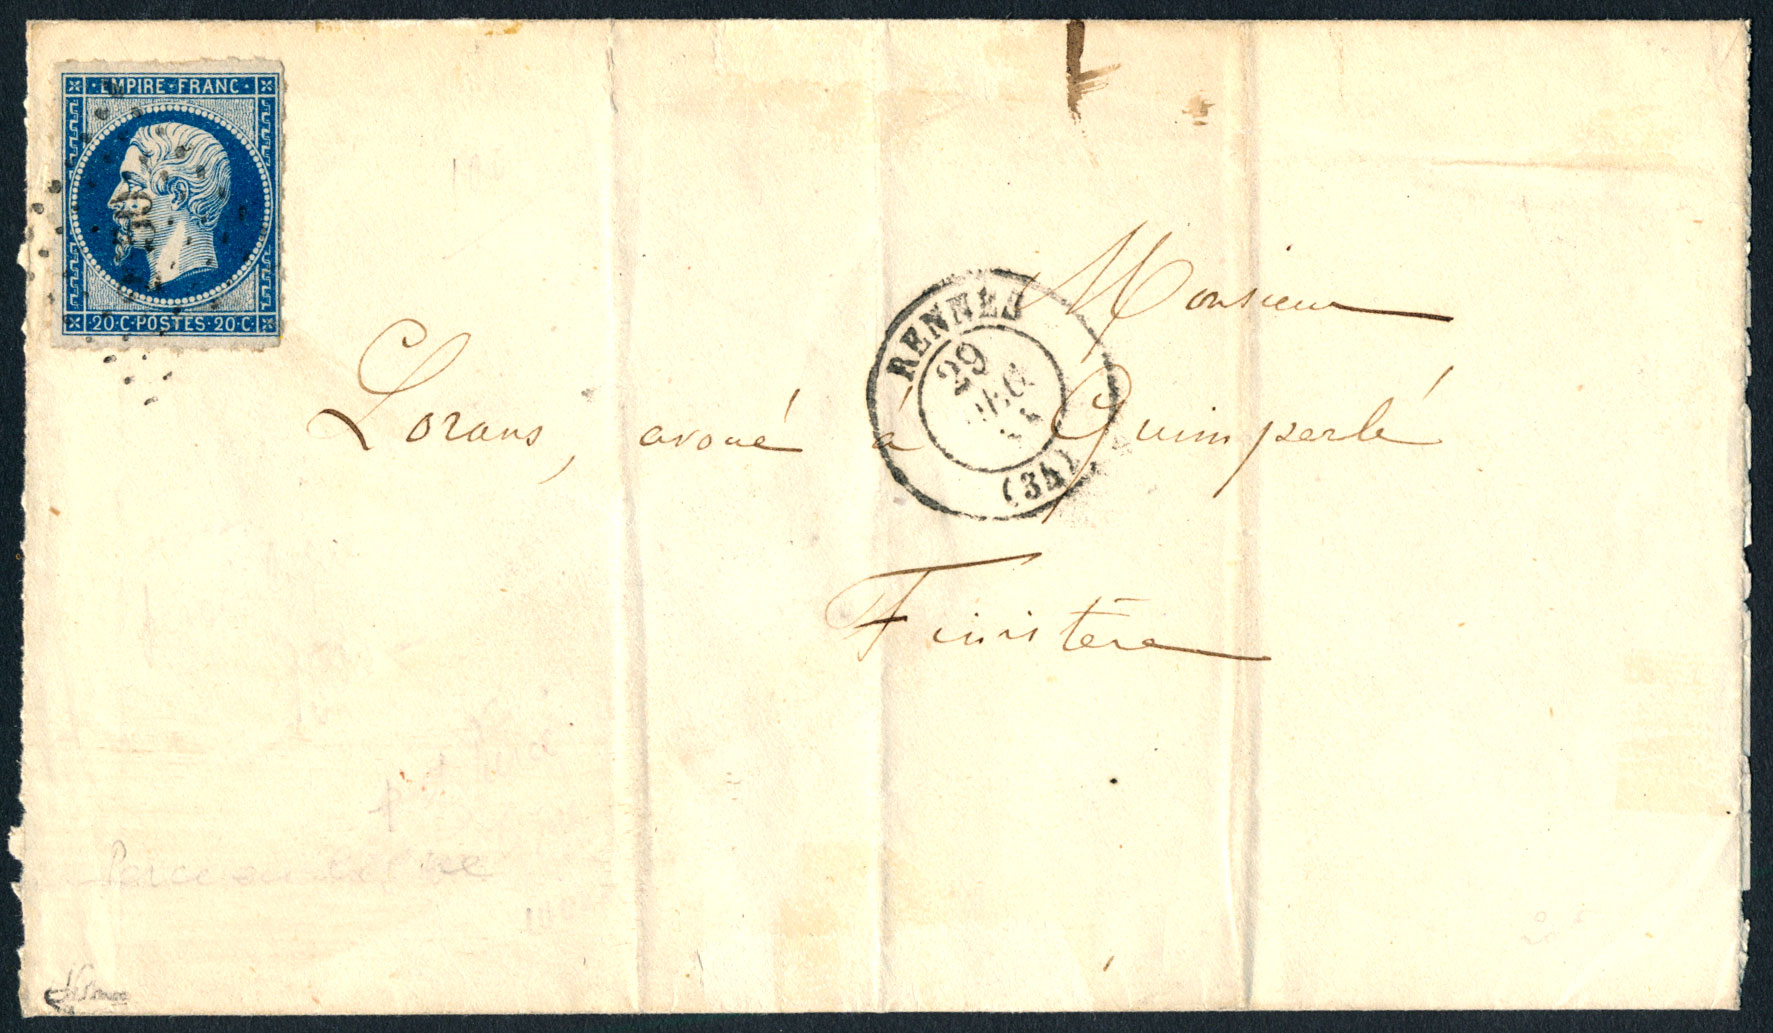 EMPIRE FRANC
20·C·POSTES·20·C·
RENNES
29
DEC
(34)
Monsieur
Lorans, avoué à Quimperlé
Finistère